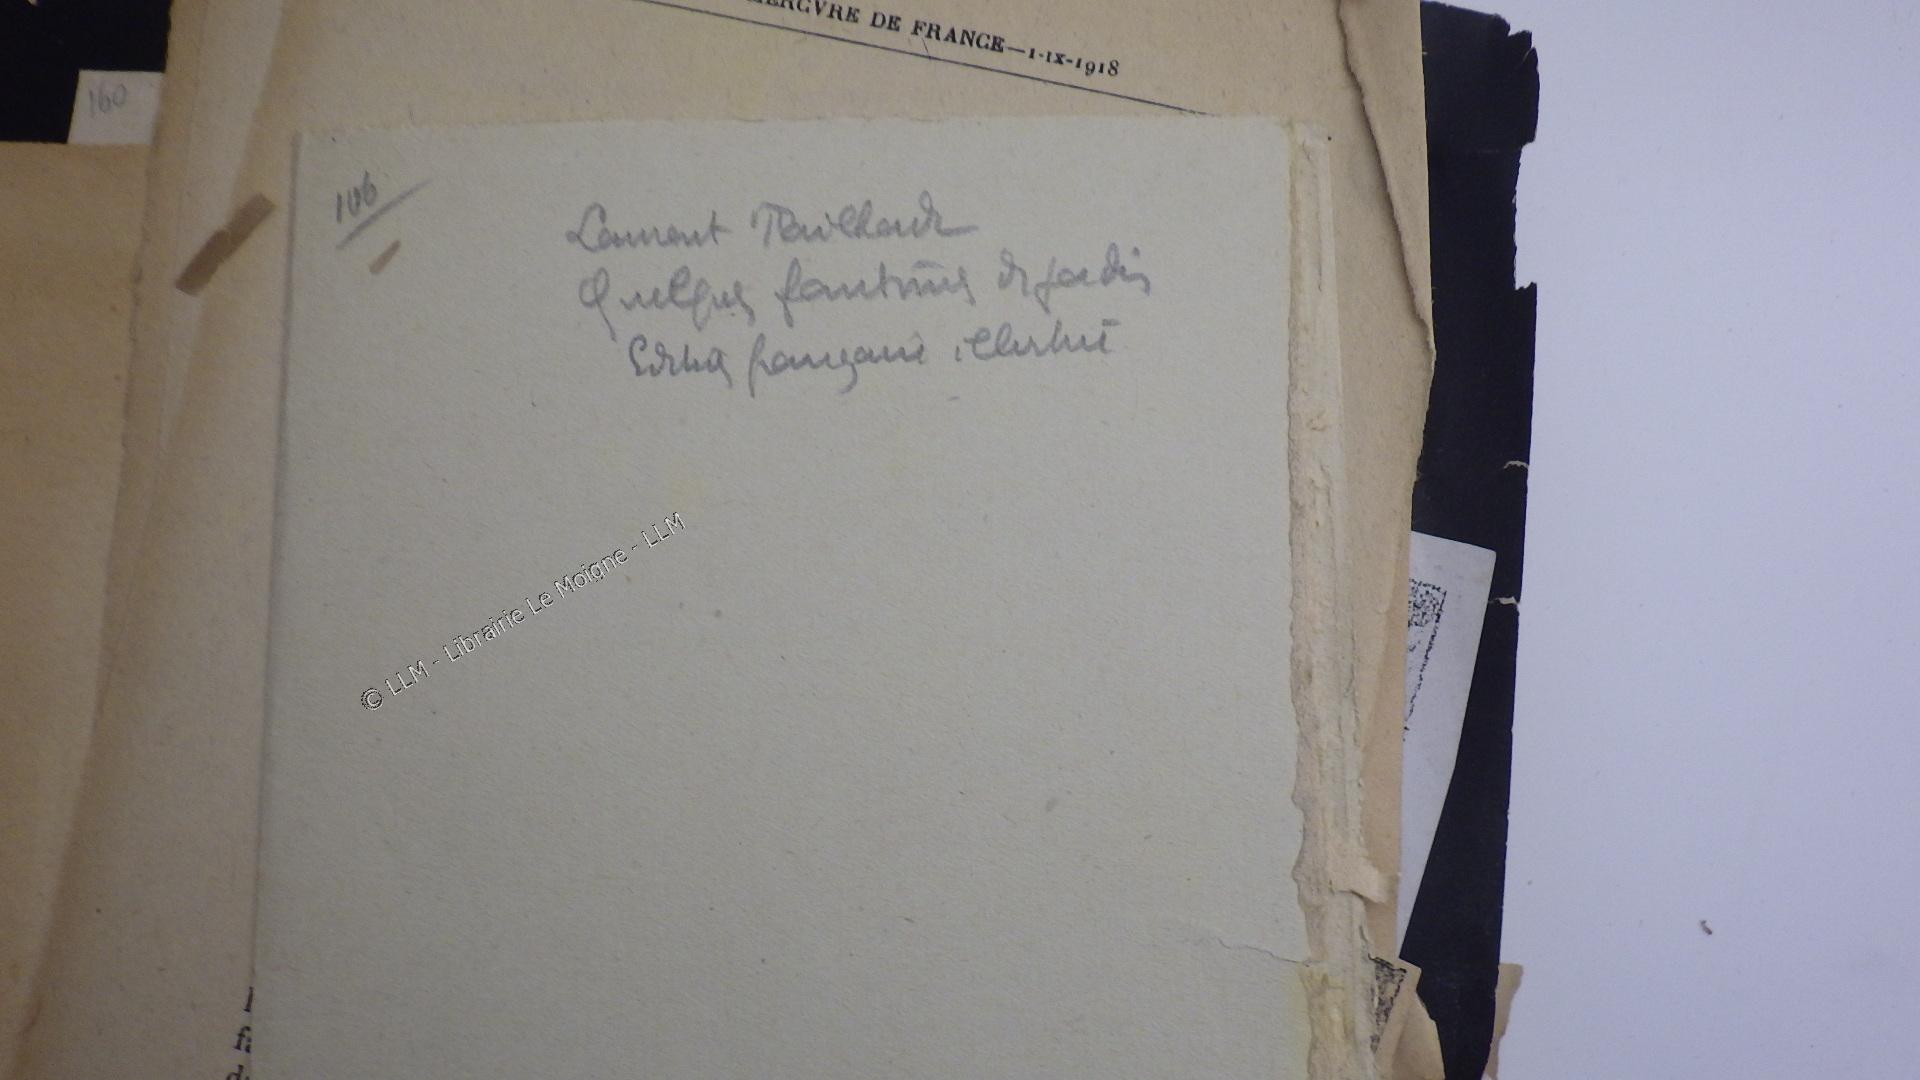 MERCVRE DE FRANCE—1-IX-1918
160
106
Laurent Tailhade
Quelques fantômes de jadis
Edition française illustrée
© LLM - Librairie Le Moigne - LLM